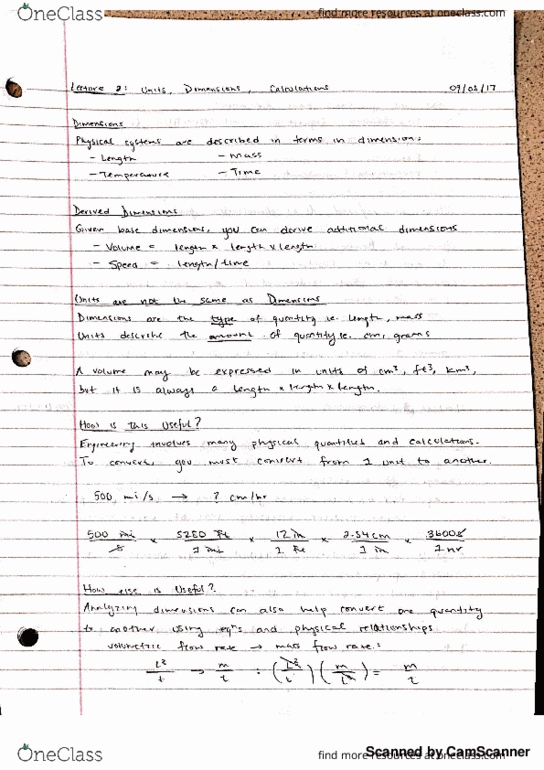 OneClass
find more resources at oneclass.com
Lecture 2: Units, Dimensions, Calculations 09/08/17
Dimensions
Physical systems are described in terms in dimension:
- Length - Mass
- Temperature - Time
Derived Dimensions
Given base dimensions, you can derive additional dimensions
- Volume = length x length x length
- Speed = length/time
Units are not the same as Dimensions
Dimensions are the type of quantity i.e. length, mass
Units describe the amount of quantity i.e. cm, grams
A volume may be expressed in units of cm³, ft³, km³,
but it is always a length x length x length.
How is this Useful?
Engineering involves many physical quantities and calculations.
To convert, you must convert from 1 unit to another.
500 mi/s → ? cm/hr
500 mi/s x 5280 ft/1 mi x 12 in/1 ft x 2.54 cm/1 in x 3600s/1 hr
How else is Useful?
Analyzing dimensions can also help convert one quantity
to another using eqⁿs and physical relationships
volumetric flow rate → mass flow rate:
L³/t → m/t : (L³/t)(m/L³) = m/t
OneClass
find more resources at oneclass.com
Scanned by CamScanner